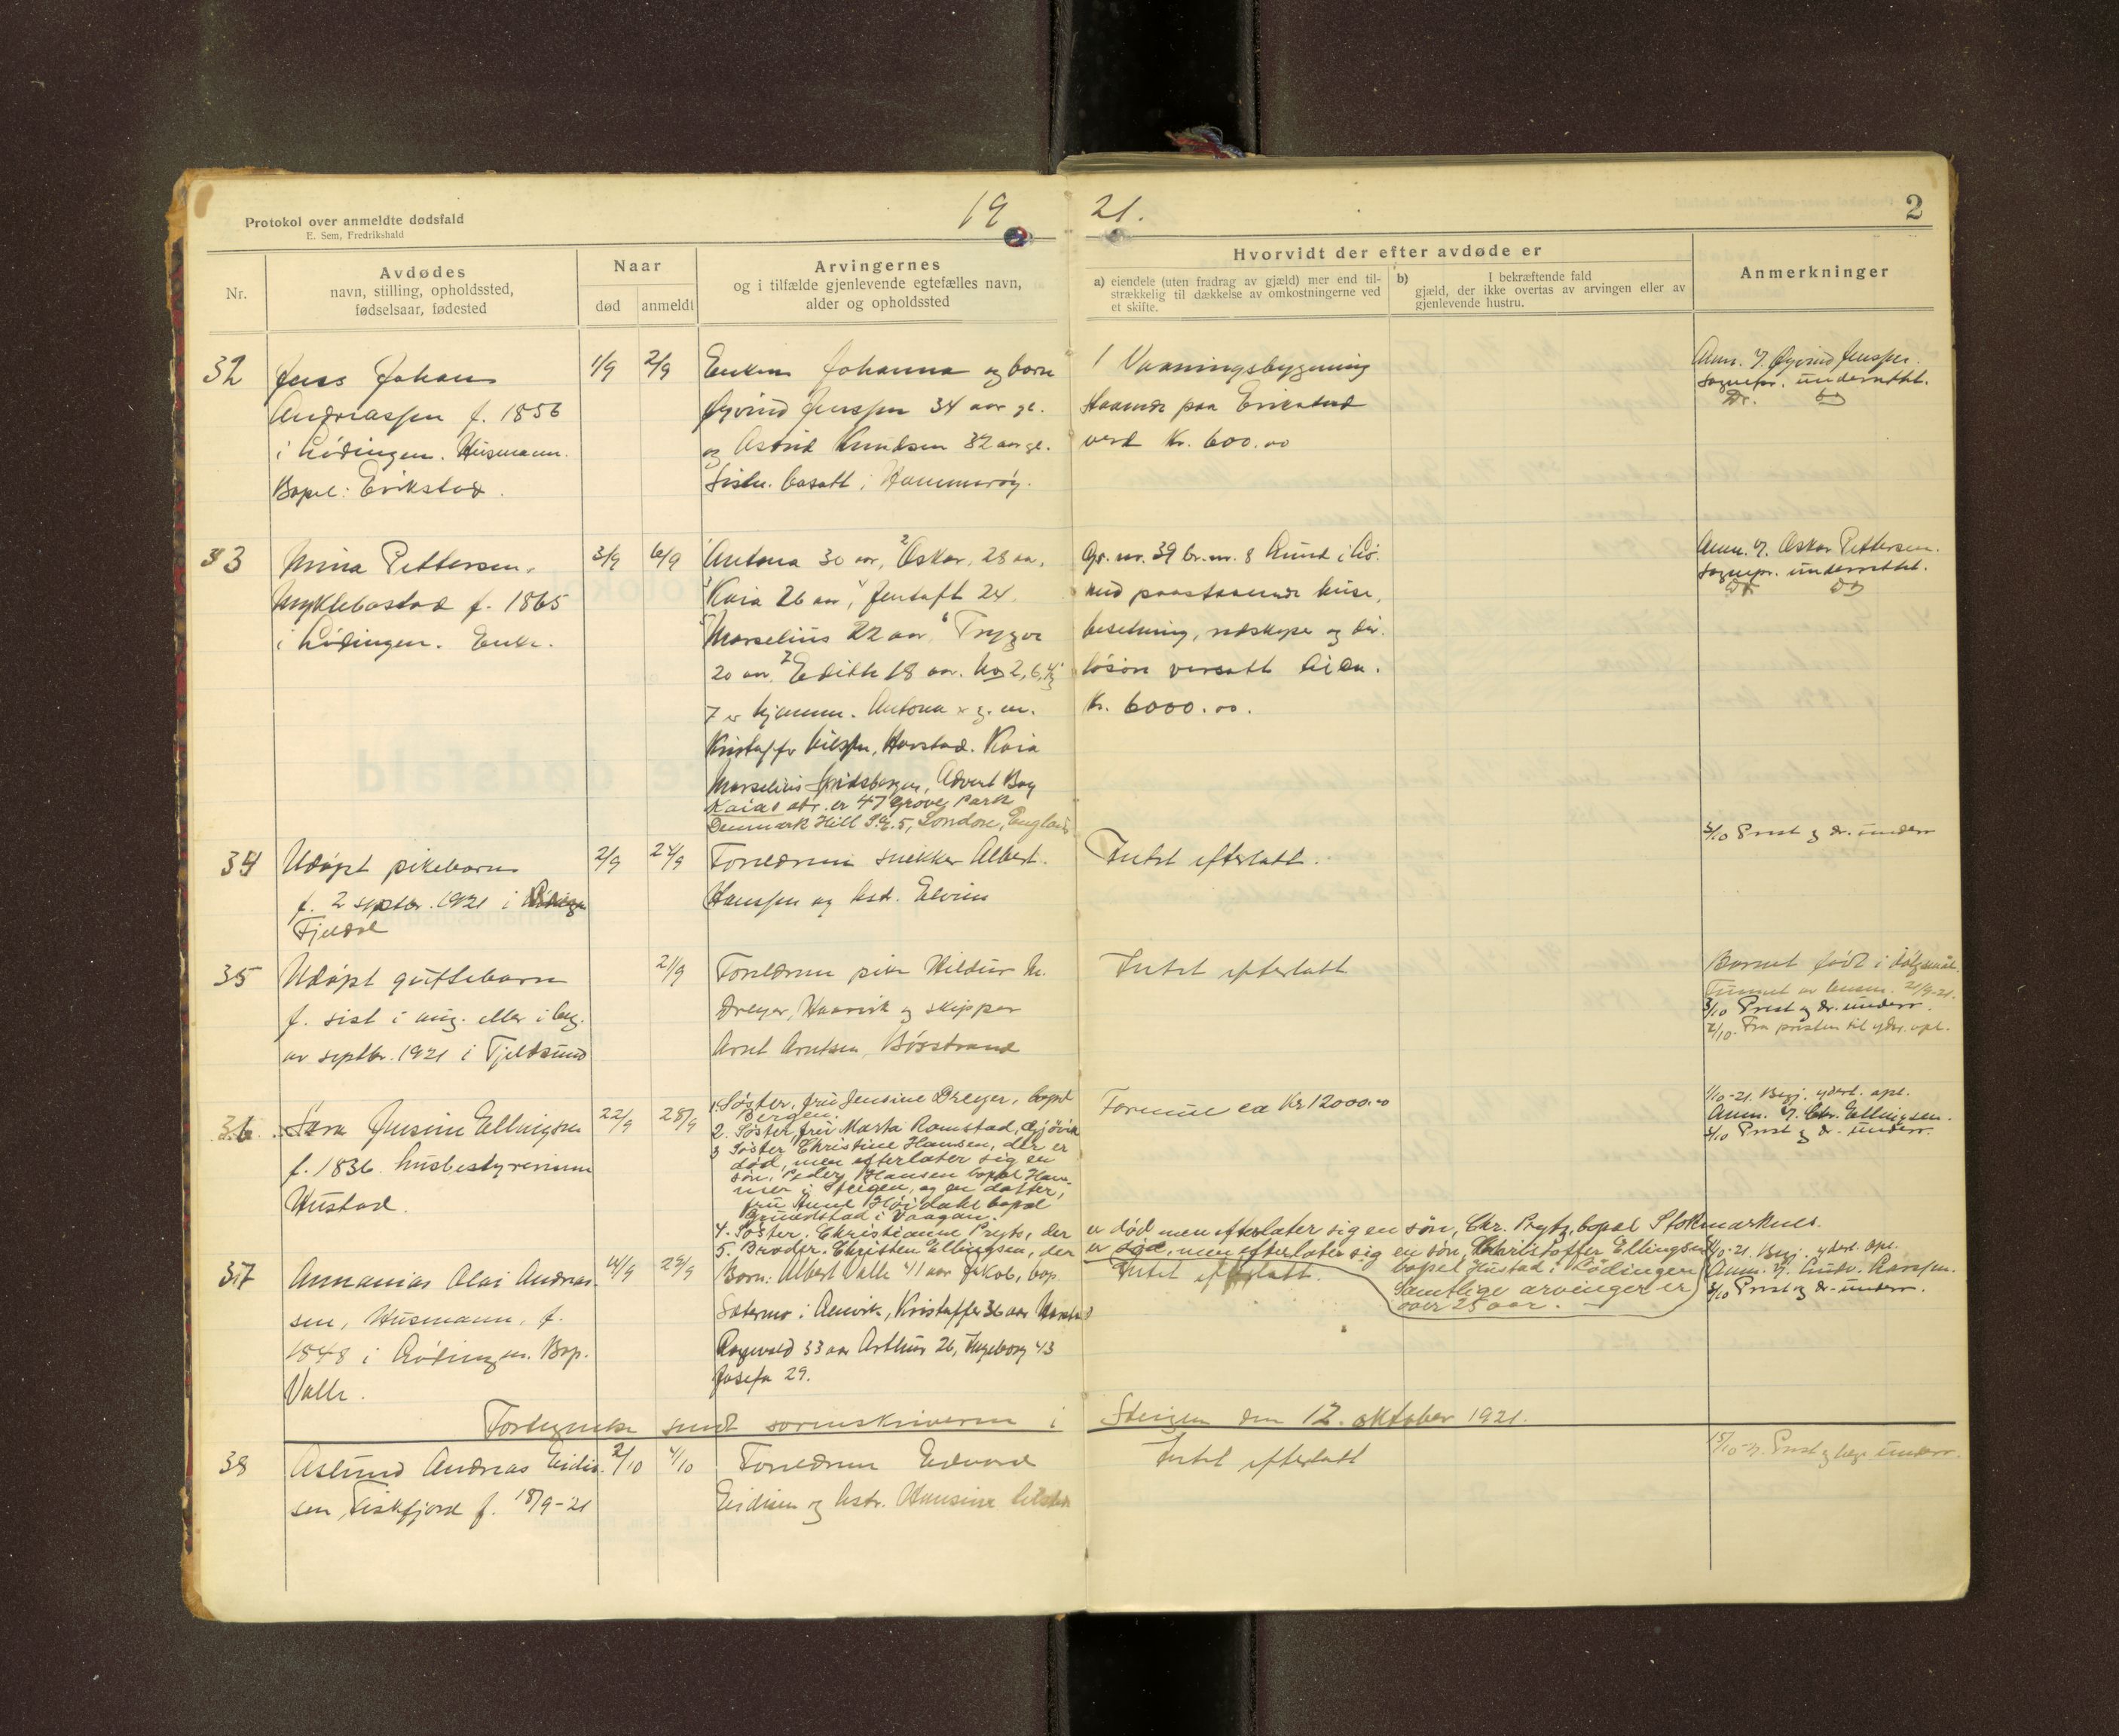 19 21.
2
Protokol over anmeldte dødsfald
E. Sem, Fredrikshald
Nr.
Avdødes
navn, stilling, opholdssted,
fødselsaar, fødested
Naar
død
anmeldt
Arvingernes
og i tilfælde gjenlevende egtefælles navn,
alder og opholdssted
Hvorvidt der efter avdøde er
a) eiendele (uten fradrag av gjæld) mer end til-
strækkelig til dækkelse av omkostningerne ved
et skifte.
b) I bekræftende fald
gjæld, der ikke overtas av arvingen eller av
gjenlevende hustru.
Anmerkninger
32
Jens Johan
Andreassen f. 1856
i Lödingen. Husmann.
Bopel: Erikstad.
1/9
2/9
Enken Johanna og barn
Øyvind Jenssen 34 aar gl.
og Astrid Knudsen 32 aar gl.
Sistn. bosatt i Hammerøy.
1 Vaaningsbygning
staaende paa Erikstad
verd Kr. 600.00
Anm. v. Øyvind Jenssen.
Sognepr. underrettet.
Dr. do
33
Mina Pettersen.
Myklebostad f. 1865
i Lödingen. Enke.
3/9
6/9
Antona 30 aar, 2 Oskar, 28 aa.
3 Kaia 26 aar, 4 Jentoft 24.
5 Marselius 22 aar, 6 Trygve
20 aar, 7 Edith 18 aar. No 2, 6, 4 og
7 er hjemme. Antona er g. m.
Kristoffer Nilssen, Harstad. Kaia
Marselius Advent Bay
Kaias adr. er 47 Grove Park
Denmark Hill S.E. 5, London, England
Gr. nr. 39 br. nr. 8 Rund i Lö.
med paastaaende huse,
besetning, redskaper og div.
løsøre
Kr. 6000.00.
Anm. v. Oskar Pettersen.
Sognepr. underrettet.
Dr. do
34
Udöpt pikebarn
f. 2 septbr. 1921 i
Fjeldal
2/9
24/9
Foreldrene snekker Albert
Hanssen og hst. Elvine
Intet efterlatt.
3/10 Prest og dr. underr
35
Udöpt guttebarn
f. sist i aug. eller i beg.
av septbr. 1921 i Tjeldsund
21/9
Foreldrene pike Hildur M.
Dreyer, Haarvik og skipper
Arnt Arntsen, Bösstrand
Intet efterlatt
Barnet född i dölgsmål.
21/9-21.
3/10 Prest og dr. underr.
Fra presten til yder. opl.
36
Sara Jensine Ellingsen
f. 1836. husbestyrerinne
Hustad.
22/9
28/9
1. Søster, fru Jensine Dreyer, bopel
Bergen.
2. Søster, fru Marta Ramstad, Gjövik
3 Søster Christine Hansen, der er
død, men efterlater sig en
søn, Peder Hansen bopel Ham-
mer i Steigen, og en datter,
fru Høidahl bopel
i Vaagan.
4. Søster. Christianne Prytz, der er död men efterlater sig en sön, Chr. Prytz, bopel Stokmarknes.
5. Broder. Christen Ellingsen, der er död, men efterlater sig en sön, Christoffer Ellingsen
bopel Hustad i Lödingen
Samtlige arvinger er
over 25 aar.
Formue ca Kr 12000.00
1/10-21. Begj. yderl. opl.
Anm. v. Chr. Ellingsen.
3/10 Prest og dr. underr.
37
Annanias Olai Andreas-
sen, Husmann, f.
1848 i Lödingen. Bop.
Valle.
29/9
Barn: Albert Valle 41 aar Jakob, bop.
Sætermo i Kristoffer 36 aar Harstad
Ragnvald 33 aar Arthur 26, Ingeborg 43
Josefa 29.
Intet efterlatt.
1/10-21. Begj. yderl. opl.
3/10 Prest og dr. underr.
Fortegnelse sendt sorenskriveren i Steigen den 12. oktober 1921.
38
Aslund Andreas Eidis-
sen, Fiskfjord f. 18/9-21
2/10
4/10
Foreldrene Edvard
Eidisen og hstr. Hansine
Intet efterlatt
15/10-21. Prest og læge underr.